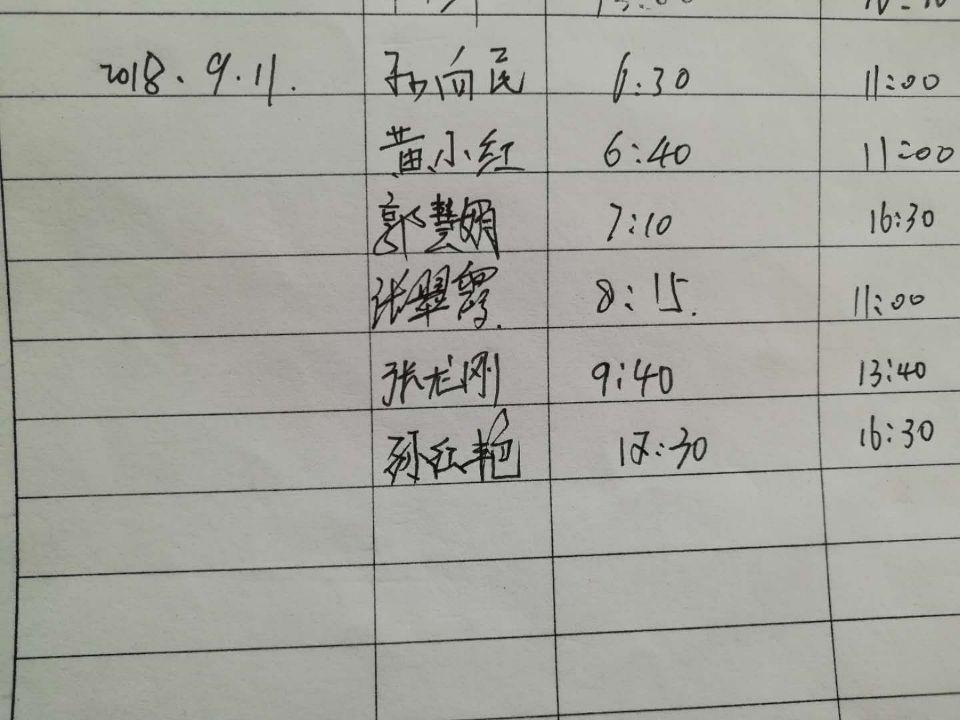 2018.9.11. 孙向民 6:30 11:00
黄小红 6:40 11:00
郭慧娟 7:10 16:30
张翠霞. 8:15. 11:00
张龙刚 9:40 13:40
孙红艳 :30 16:30